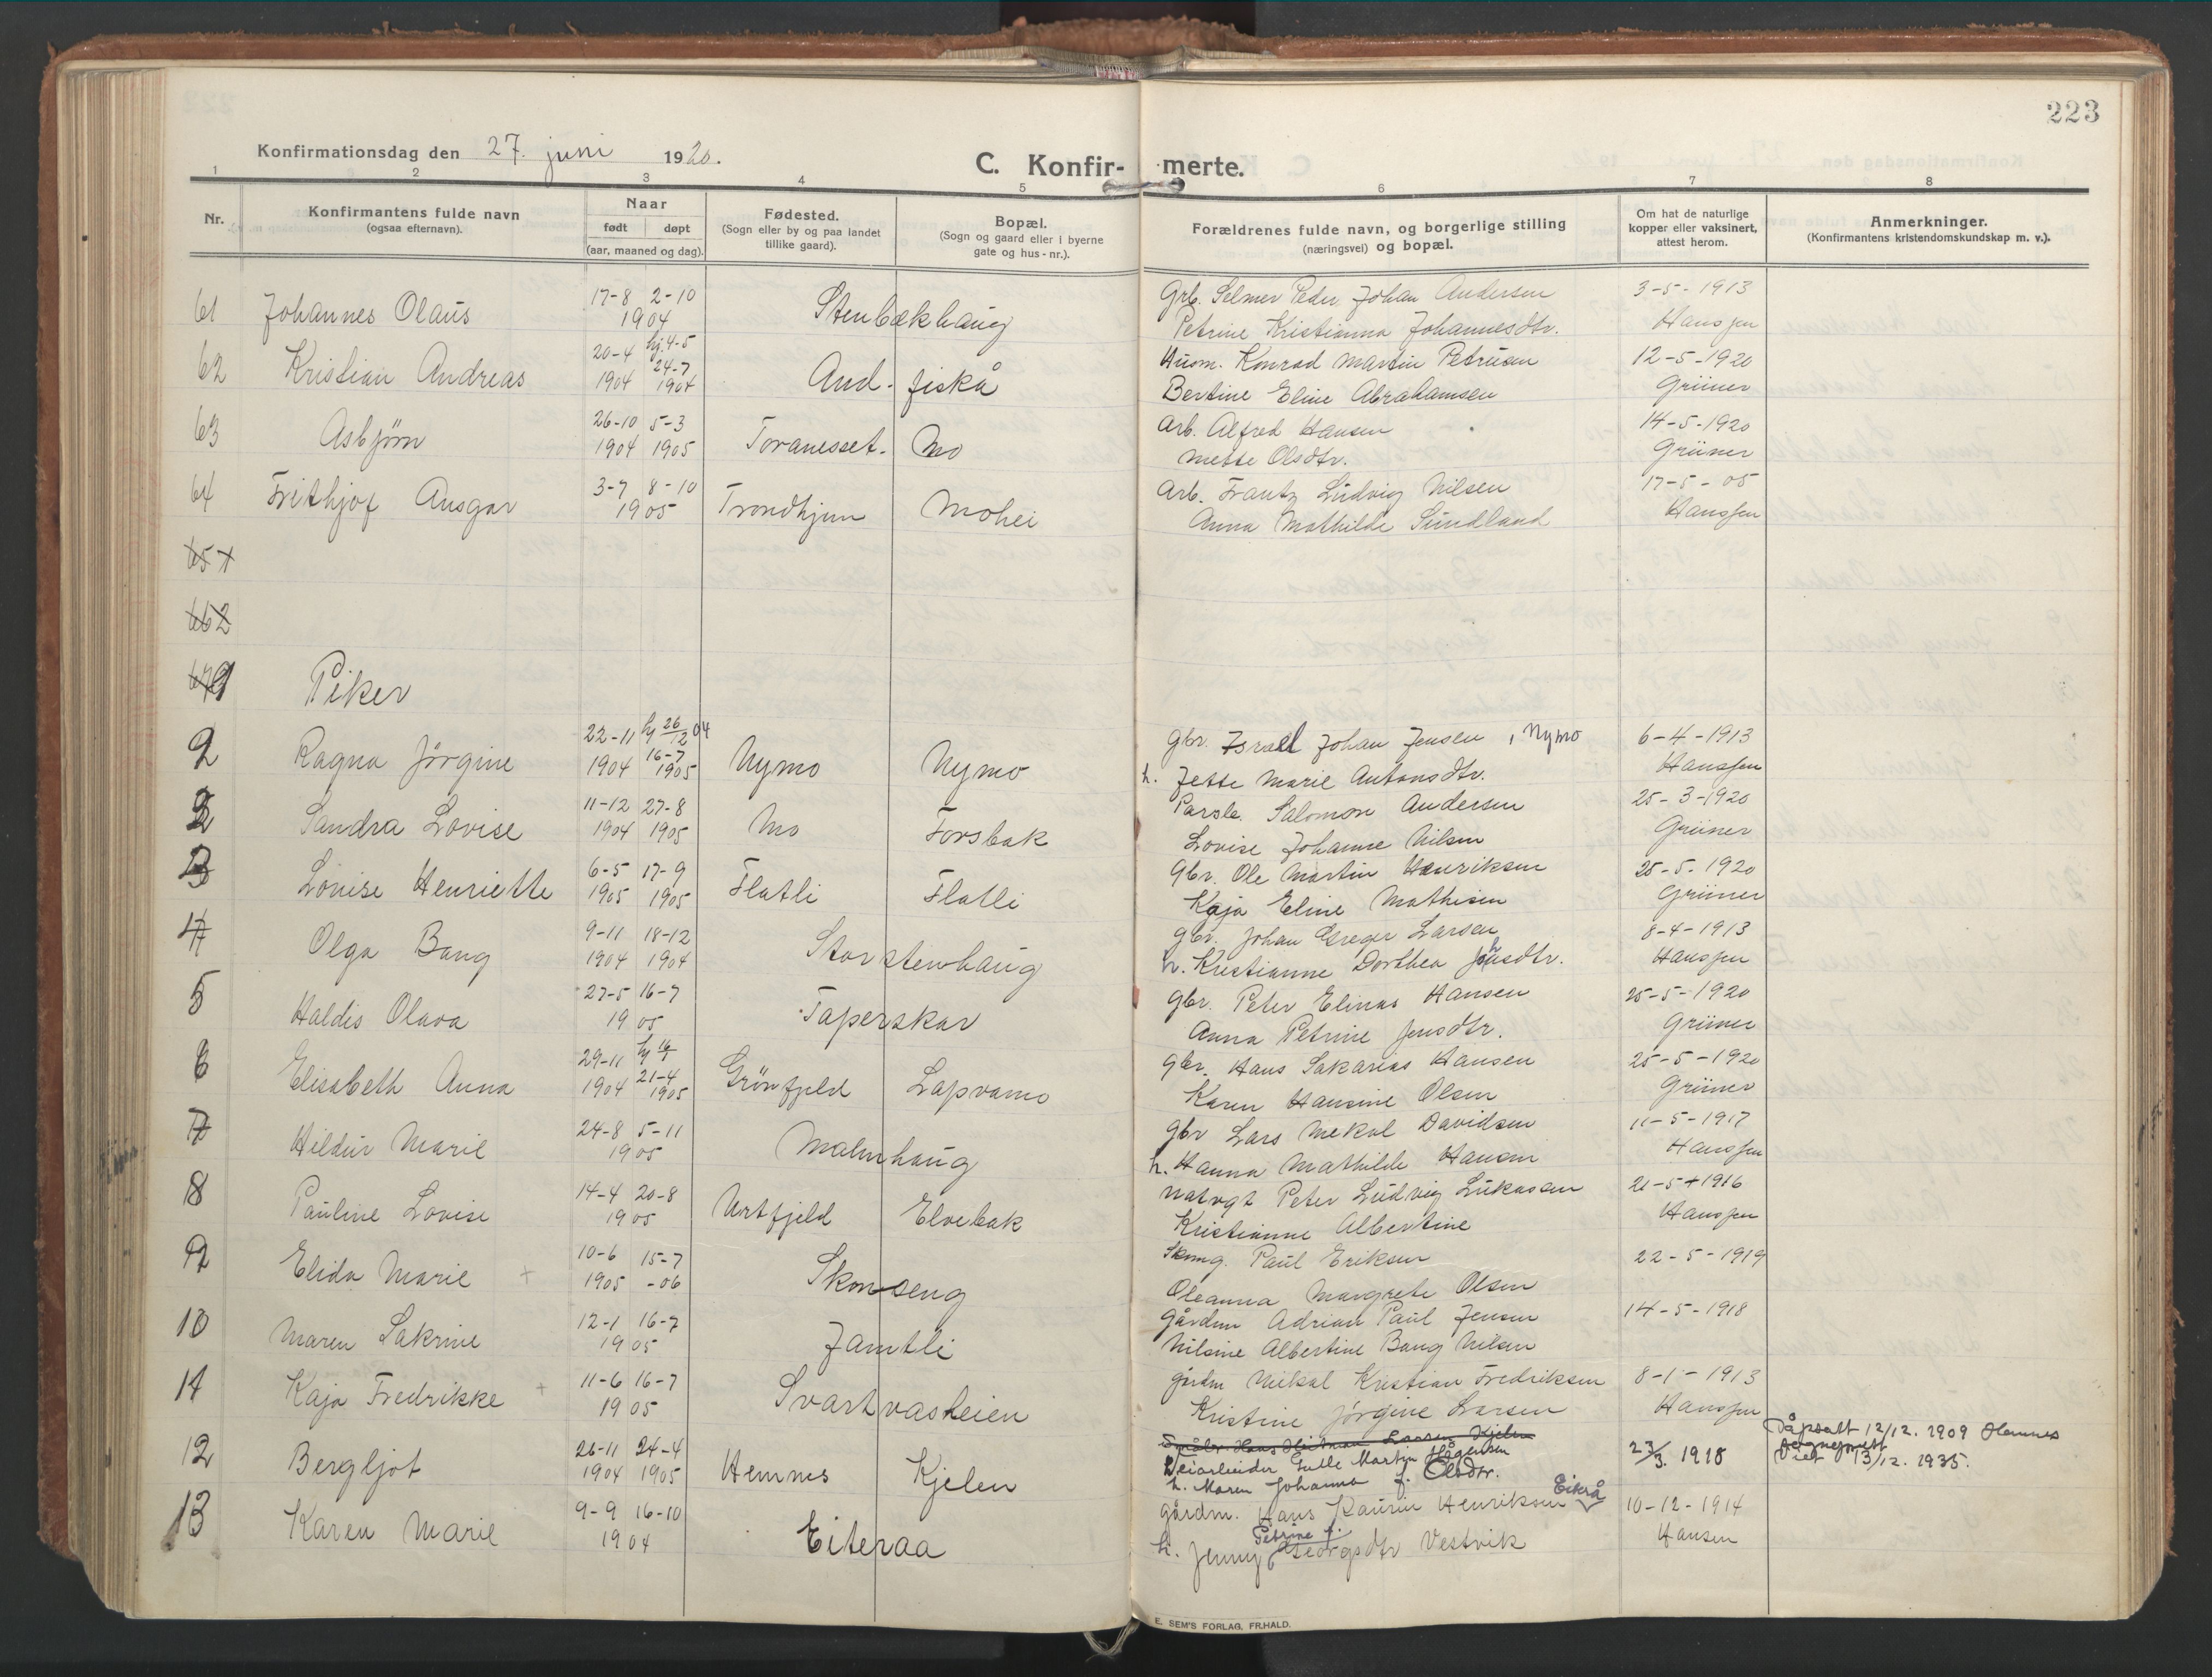 223
Konfirmationsdag den 27. juni 1920.
C. Konfir- merte.
1 2 3 4 5 6 7 8
Nr.
Konfirmantens fulde navn
(ogsaa efternavn).
Naar
født døpt
(aar, maaned og dag).
Fødested.
(Sogn eller by og paa landet
tillike gaard).
Bopæl.
(Sogn og gaard eller i byerne
gate og hus-nr.).
Forældrenes fulde navn, og borgerlige stilling
(næringsvei) og bopæl.
Om hat de naturlige
kopper eller vaksinert,
attest herom.
Anmerkninger.
(Konfirmantens kristendomskundskap m. v.).
61 Johannes Olaus 17-8 2-10 1904 Stenbækhaug
Grb. Selmer Peder Johan Andersen 3-5-1913
Petrine Kristianna Johannesdtr. Hanssen
62 Kristian Andreas 20-4 1904 hj. 4-5 24-7 1904 Andfiskå
Husm. Konrad Martin Petrusen 12-5-1920
Bertine Eline Abrahamsen Grüner
63 Asbjørn 26-10 1904 5-3 1905 Toranesset. Mo
Arb. Alfred Hansen 14-5-1920
Mette Olsdtr. Grüner
64 Frithjof Ansgar 3-7 8-10 1905 Trondhjem Mohei
Arb. Frantz Ludvig Nilsen 17-5-05
Anna Mathilde Sundland Hanssen
65
66
67 Piker
2 Ragna Jørgine 22-11 1904 hj 26/12 04 16-7 1905 Nymo Nymo
gbr. Israel Johan Jensen, Nymo 6-4-1913
h. Jette Marie Antonsdtr. Hanssen
Sandra Lovise 11-12 1904 27-8 1905 Mo Forsbak
Salomon Andersen 25-3-1920
Lovise Johanne Nilsen Grüner
3 Lovise Henriette 6-5 1905 17-9 1905 Flatli Flatli
Gbr. Ole Martin Henriksen 25-5-1920
Kaja Eline Mathisen Grüner
4 Olga Bang 9-11 1904 18-12 1904 Storstenhaug
gbr. Johan Greger Larsen 8-4-1913
h. Kristianne Dorthea Johnsdtr. Hanssen
5 Haldis Olava 27-5 16-7 1905 Taperskar
gbr. Peter Elinas Hansen 25-5-1920
Anna Petrine Jensdtr. Grüner
6 Elisabeth Anna 29-11 1904 21-4 1905 Grønfjeld Lapvamo
gbr. Hans Sakarias Hansen 25-5-1920
Karen Hansine Olsen Grüner
7 Hildur Marie 24-8 5-11 1905 Malmhaug
gbr Lars Mekal Davidsen 11-5-1917
h. Hanna Mathilde Hansen Hanssen
8 Pauline Lovise 14-4 20-8 1905 Urtfjeld Elvebak
Peter Ludvig Lukassen 21-5-1916
Kristianne Albertine Hanssen
9 Elida Marie + 10-6 1905 15-7 -06 Skonseng
Paul Eriksen 22-5-1919
Oleanna Margrete Olsen
10 Maren Sakrine 12-1 16-7 1905 Jamtli
Gårdm Adrian Paul Jensen 14-5-1918
Nilsine Albertine Bang Nilsen
11 Kaja Fredrikke + 11-6 16-7 1905 Svartvasheien
gårdm Mikal Kristian Fredriksen 8-1-1913
Kristine Jørgine Larsen Hanssen
12 Bergljot 26-11 1904 24-4 1905 Hemnes Kjelen
Hans Larsen Kjelen
Veiarbeider Gulle Martin Hågensen 23/3. 1918
h. Maren Johanna f. Olsdtr.
Dåpsatt 12/12. 1909 Hemnes
13/12. 1935.
13 Karen Marie 9-9 16-10 1904 Eiteraa
gårdm. Hans Kaurin Henriksen Eitrå 10-12-1914
h. Jenny Petrine f. Georgsdtr Vestvik Hansen
E. SEM'S FORLAG, FR.HALD.